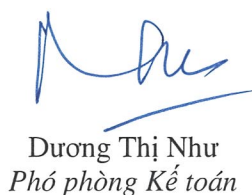 Dương Thị Như
Phó phòng Kế toán